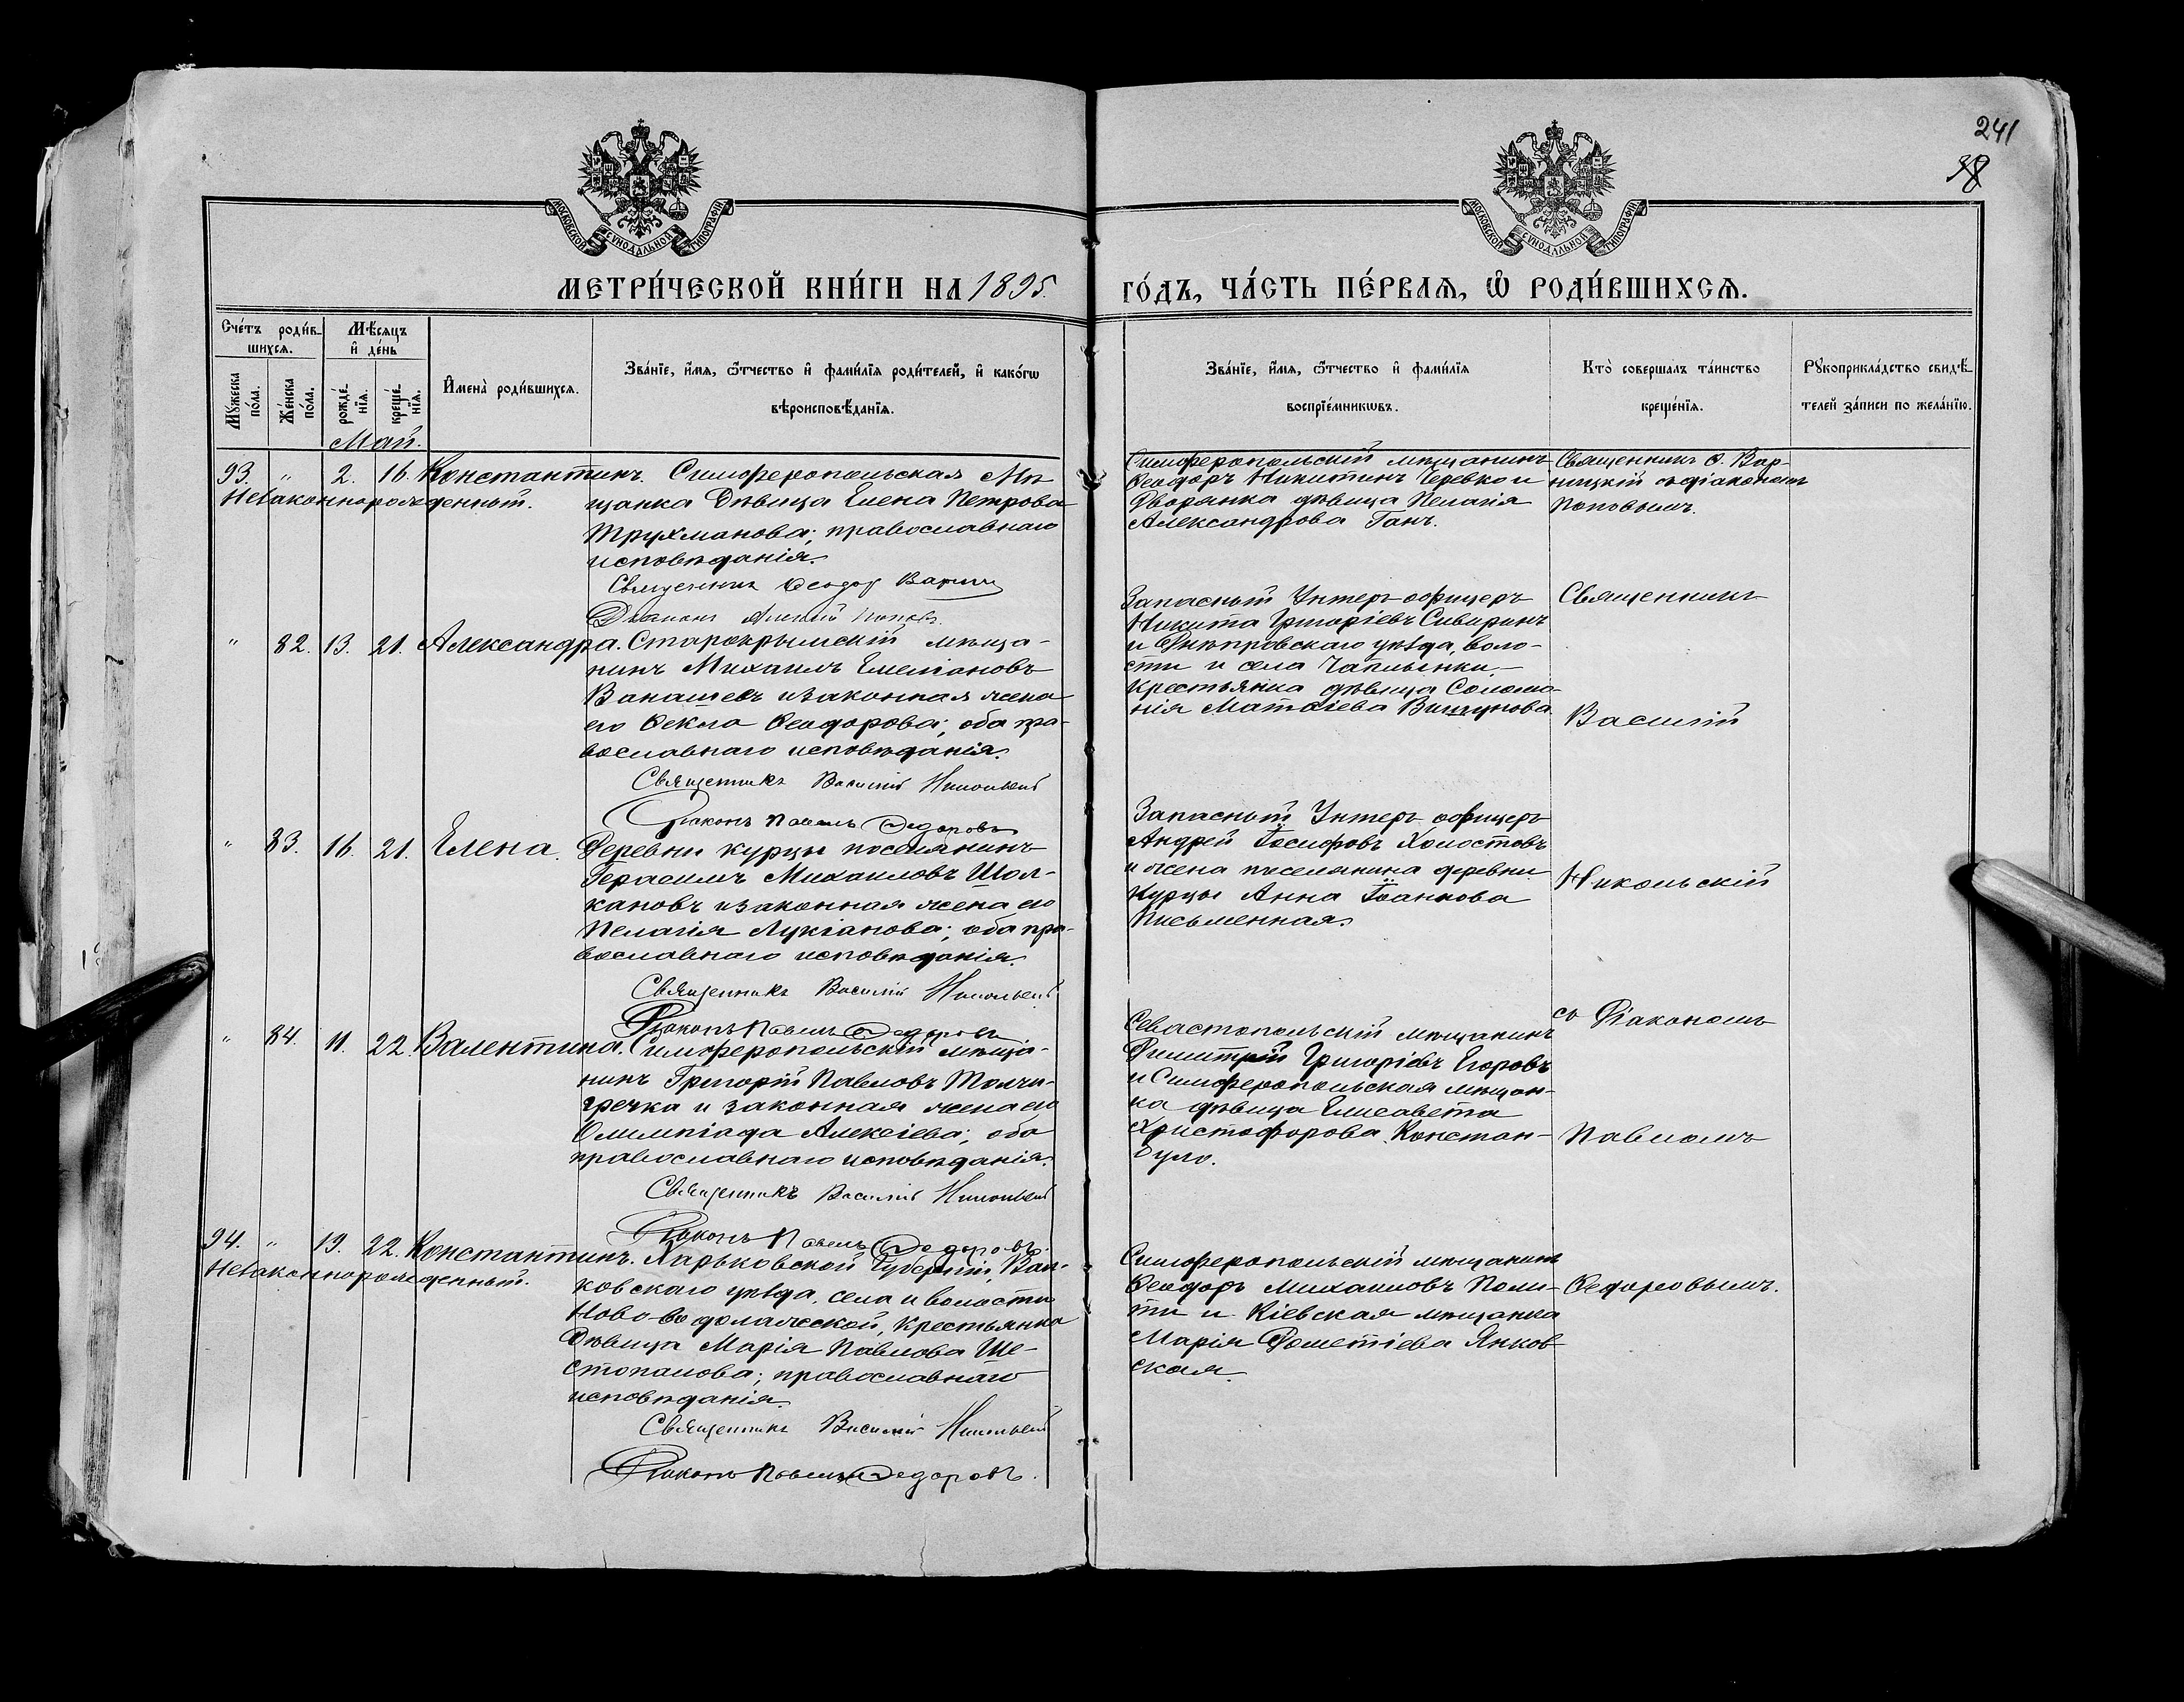 241
38
МОСКОВСКОЙ СѴНОДАЛЬНОЙ ТИПОГРАФІИ
МОСКОВСКОЙ СѴНОДАЛЬНОЙ ТИПОГРАФІИ
МЕТРИ́ЧЕСКОЙ КНИ́ГИ НА 1895.
ГО́ДЪ, ЧА́СТЬ ПЕ́РВАѦ, Ѽ РОДИ́ВШИХСѦ.
Сче́тъ роди́в-
шихсѧ.
Мѣ́сѧцъ
и҆ де́нь
Мꙋ́жеска по́ла.
Же́нска по́ла.
рожде́-нїѧ.
креще́-нїѧ.
И҆мена̀ роди́вшихсѧ.
Зва́нїе, и҆́мѧ, ѻ҆́тчество и҆ фами́лїѧ роди́телей, и҆ како́гѡ
вѣроисповѣ́данїѧ.
Зва́нїе, и҆́мѧ, ѻ҆́тчество и҆ фами́лїѧ
воспрїе́мникѡвъ.
Кто̀ соверша́лъ та́инство
креще́нїѧ.
Рꙋкоприкла́дство свидѣ́-
телей за́писи по жела́нїю.
Май.
93. " 2. 16. Константинъ. Симферопольская Мѣ
Незаконнорожденный. щанка Дѣвица Елена Петрова
Трухманова; православнаго
исповѣданія.
Священникъ Ѳеодор
Діаконъ Поповъ.
Симферопольскій мѣщанинъ
Ѳеодоръ Никитинъ Черевко и
Дворянка дѣвица Пелагія
Александрова Ганъ.
Священникъ Ѳ. Вар-
ницкій съ діакономъ
Поповымъ.
" 82. 13. 21. Александра. Старокрымскій мѣща-
нинъ Михаилъ Емеліановъ
Ванашевъ и законная жена
его Ѳекла Ѳеодорова; оба пра-
вославнаго исповѣданія.
Священникъ Василій Никольскій
Діаконъ Павелъ Ѳедоровъ
Запасный Унтеръ-оофицеръ
Никита Григоріевъ Сиваринъ
и Днѣпровскаго уѣзда, воло-
сти и села Чаплынки,
крестьянка дѣвица Соломо-
нія Матѳіева
Священникъ
Василій
" 83. 16. 21. Елена. Деревни Курцы поселянинъ
Герасимъ Михаиловъ Шол-
кановъ и законная жена его
Пелагія Лукіанова; оба пра-
вославнаго исповѣданія.
Священникъ Василій Никольскій
Діаконъ Павелъ Ѳедоровъ
Запасный Унтеръ оофицеръ
Андрей Іосифовъ Холостовъ
и жена поселянина деревни
Курцы Анна Іоаннова
Письменная.
Никольскій
" 84. 11. 22. Валентина. Симферопольскій мѣща-
нинъ Григорій Павловъ Толчи-
гречка и законная жена его
Олимпіада Алексіева; оба
православнаго исповѣданія.
Священникъ Василій Никольскій
Діаконъ Павелъ Ѳедоровъ
Севастопольскій мѣщанинъ
Димитрій Григоріевъ Егоровъ
и Симферопольская мѣщан-
ка дѣвица Елисавета
Христофорова Констан-
дуло.
съ Діакономъ
Павломъ
94. " 19. 22. Константинъ. Харьковской Губерніи, Вал-
Незаконнорожденный. ковскаго уѣзда, села и волости
Ново-водолажской, крестьянка
Дѣвица Марія Павлова Ше-
стопалова; православнаго
исповѣданія.
Священникъ Василій Никольскій
Діаконъ Павелъ Ѳедоровъ.
Симферопольскій мѣщанинъ
Ѳеодоръ Михаиловъ Поли-
ти и Кіевская мѣщанка
Марія Дометіева Янков
ская.
Ѳедоровымъ.